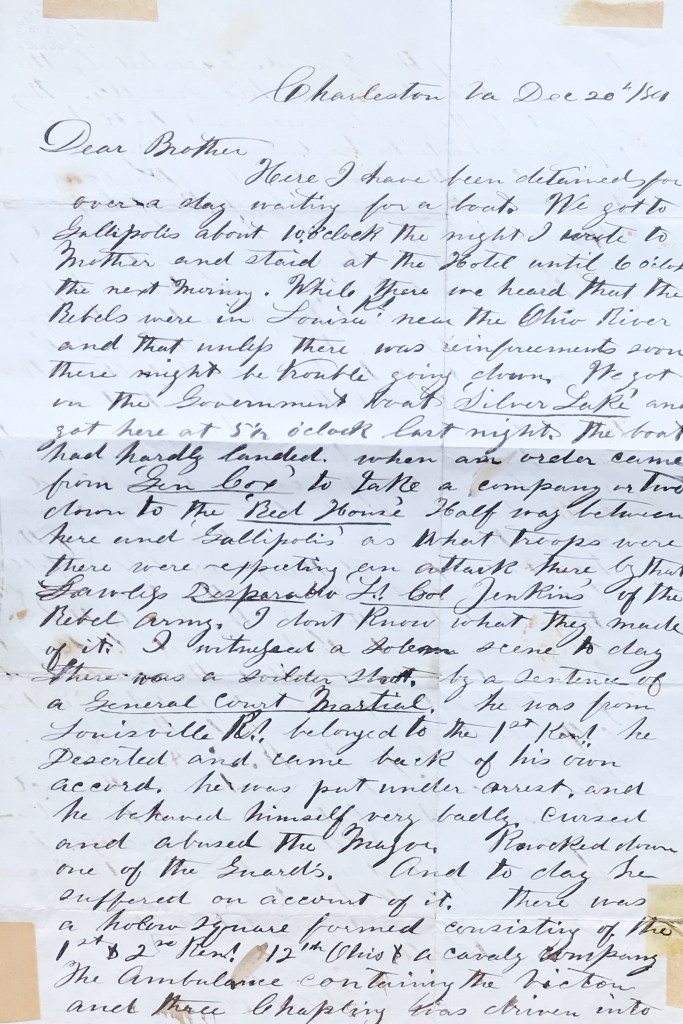 Charleston Va Dec 20th/61
Dear Brother
Here I have been detained for
over a day waiting for a boat. We got to
Gallipolis about 10 o'clock the night I wrote to
Mother and staid at the Hotel until 6 o'cloc
the next Morning. While there we heard that the
Rebels were in Louisa Ky near the Ohio River
and that unless there was reinforcements soon
there might be trouble going down. We got
on the Government boat 'Silver Lake' and
got here at 5½ o'clock last night. the boat
had hardly landed. when an order came
from 'Gen Cox' to take a company or two
down to the 'Red House' Half way between
here and 'Gallipolis' as what troops were
there were expecting an attack there by that
Lawless Desparado 'Lt Col Jenkins' of the
Rebel army. I dont Know what they made
of it. I witnessed a solemn scene to day
there was a soilder shot. by a sentence of
a General Court Martial. he was from
Louisville belonged to the 1st Ken! he
Deserted and came back of his own
accord. he was put under arrest, and
he behaved himself very badly. cursed
and abused the Major. Knocked down
one of the Guards. And to day he
suffered on account of it. there was
a holow square formed consisting of the
1st & 2nd Ken! 12th Ohio & a cavaly company
The Ambulance containing the Victom
and three was driven into